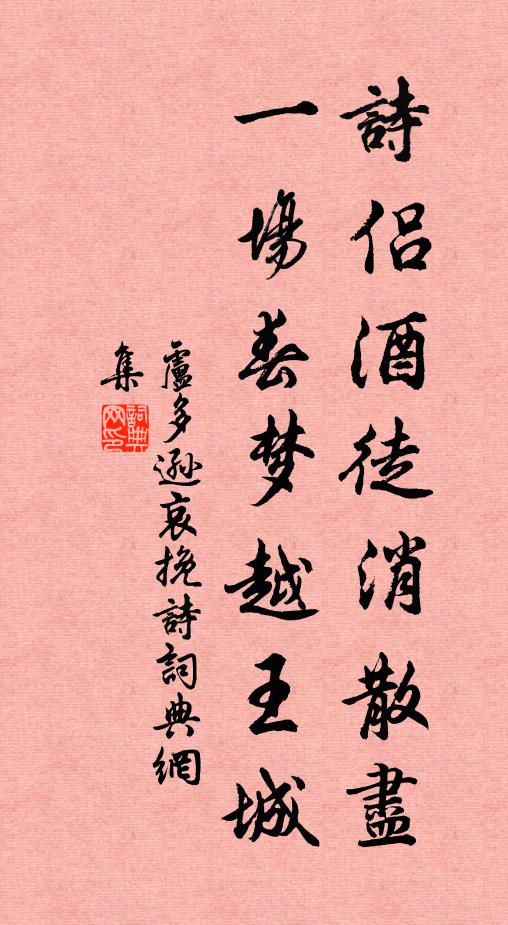 詩侣酒徒消散盡
一場春梦越王城
盧多遜哀挽詩詞典網
集
詞典網印